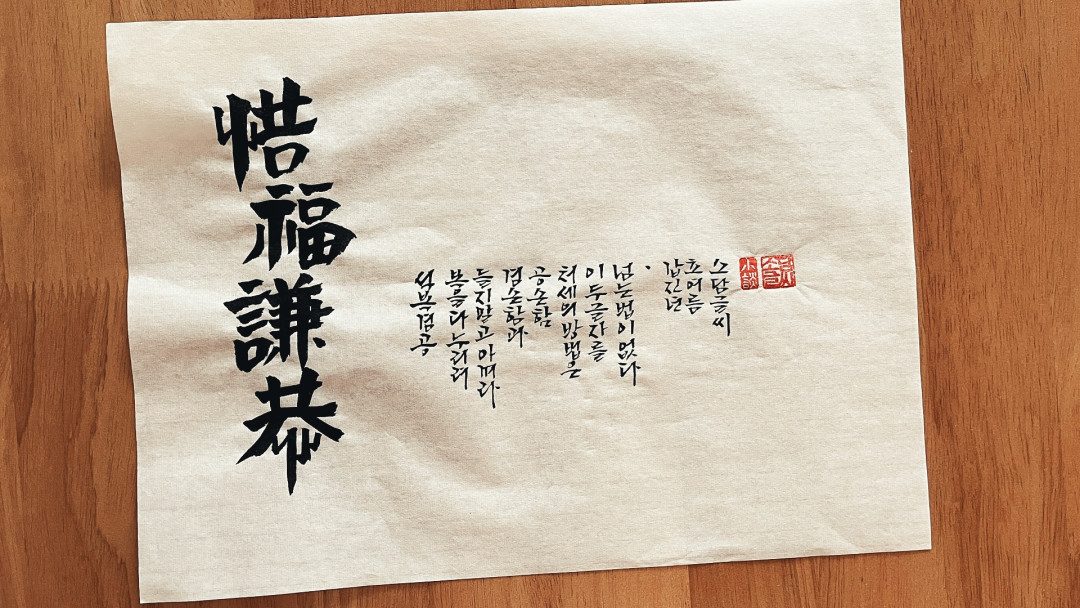 惜福謙恭
석복겸공
복을 다 누리려
들지 말고 아껴라
겸손함과
공손함
처세의 방법은
이 두 글자를
넘는 법이 없다
.
갑진년
초여름
소담글씨
小談